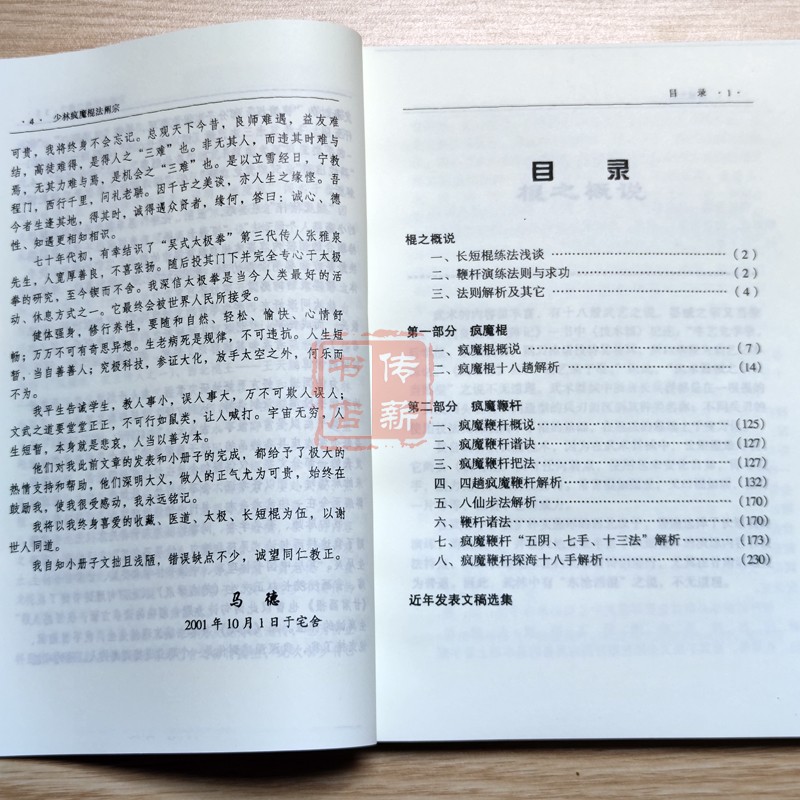 · 4 · 少林疯魔棍法阐宗
可贵，我将终身不会忘记。总观天下今昔，良师难遇，益友难
结，高徒难得，是得人之“三难”也。非无其人，而违其时难与
焉，无其力难与焉，是机会之“三难”也。是以立雪经日，宁教
程门，西行千里，问礼老聃。因千古之美谈，亦人生之缘悭。吾
今者生逢其地，得其时，诚得遇众贤者，缘何，答曰；诚心、德
性、知遇更相知相识。
七十年代初，有幸结识了“吴式太极拳”第三代传人张雅泉
先生，人宽厚善良，不喜张扬。随后投其门下并完全专心于太极
拳的研究，至今锲而不舍。我深信太极拳是当今人类最好的活
动、休息方式之一。它最终会被世界人民所接受。
健体强身，修行养性，要随和自然、轻松、愉快、心情舒
畅；万万不可有奇思异想。生老病死是规律，不可违抗。人生短
暂，当自善善人；究极科技，参证大化，放手太空之外，何乐而
不为。
我平生告诫学生，教人事小，误人事大，万不可欺人误人；
文武之道要堂堂正正，不可行如鼠类，让人喊打。宇宙无穷，人
生短暂，本身就是悲哀，人当以善为本。
他们对我此前文章的发表和小册子的完成，都给予了极大的
热情支持和帮助，他们深明大义，做人的正气尤为可贵，始终在
鼓励我，使我很受感动，我永远铭记。
我将以我终身喜爱的收藏、医道、太极、长短棍为伍，以谢
世人同道。
我自知小册子文拙且浅陋，错误缺点不少，诚望同仁教正。
马 德
2001 年 10 月 1 日于宅舍
目 录 · 1 ·
目 录
棍之概说
一、长短棍练法浅谈 （2）
二、鞭杆演练法则与求功 （2）
三、法则解析及其它 （4）
第一部分 疯魔棍
一、疯魔棍概说 （7）
二、疯魔棍十八趟解析 （14）
第二部分 疯魔鞭杆
一、疯魔鞭杆概说 （125）
二、疯魔鞭杆谱诀 （127）
三、疯魔鞭杆把法 （127）
四、四趟疯魔鞭杆解析 （132）
五、八仙步法解析 （170）
六、鞭杆诸法 （170）
七、疯魔鞭杆“五阴、七手、十三法”解析 （173）
八、疯魔鞭杆探海十八手解析 （230）
近年发表文稿选集
传新
书店